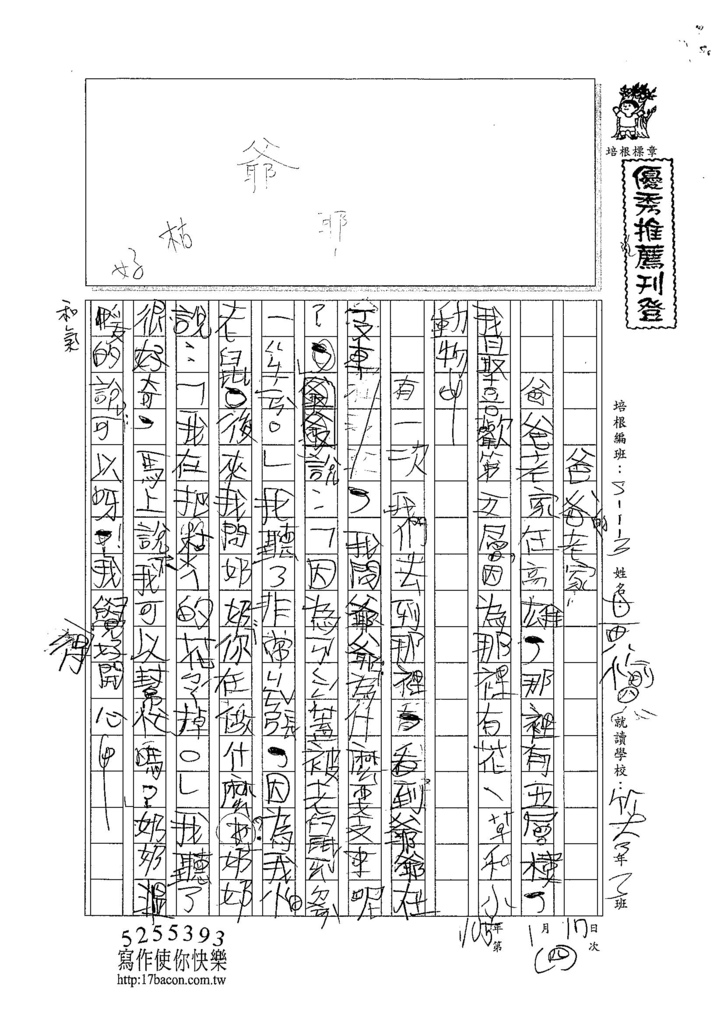 培根標章
優秀推薦刊登
培根編班：
姓名：
就讀學校：
3年2班
年1月17日
第 (四) 次
爺
耶
枯
好
爸爸的老家
爸爸老家在高雄，那裡有五層樓，
我最喜歡第五層因為那裡有花、草和小
動物。
有一次我們去到那裡看到爺爺在
，我問爺爺為什麼要
？」爺爺說：「因為 蓋被老鼠
一 。」我聽了非常 張，因為我怕
老鼠。後來我問奶奶你在做什麼？奶奶
說：「我在把 的花 掉。」我聽了
很好奇，馬上說我可以幫忙嗎？奶奶溫
暖的說可以呀！我覺得好開心。
和氣
得
5255393
寫作使你快樂
http:17bacon.com.tw